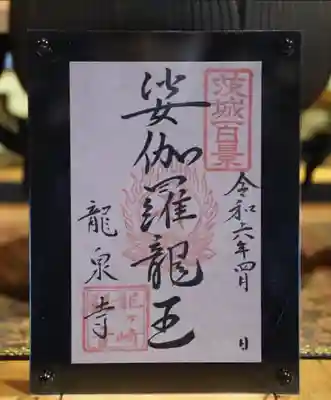 茨城百景
令和六年四月 日
娑伽羅龍王
龍泉寺
龍ヶ崎